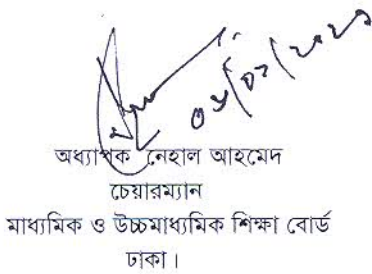 অধ্যাপক নেহাল আহমেদ
চেয়ারম্যান
মাধ্যমিক ও উচ্চমাধ্যমিক শিক্ষা বোর্ড
ঢাকা।